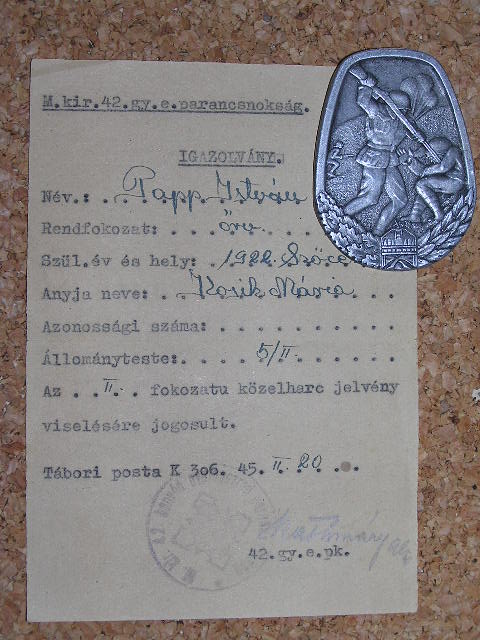 M.kir.42.gy.e.parancsnokság.
IGAZOLVÁNY.
Név.: Papp István
Rendfokozat: őrv
Szül.év és hely: 1922 Szőce
Anyja neve: Kozik Mária
Azonossági száma:
Állományteste: 5/II.
Az II. fokozatu közelharc jelvény
viselésére jogosult.
Tábori posta K 306. 45. II. 20
42.gy.e.pk.